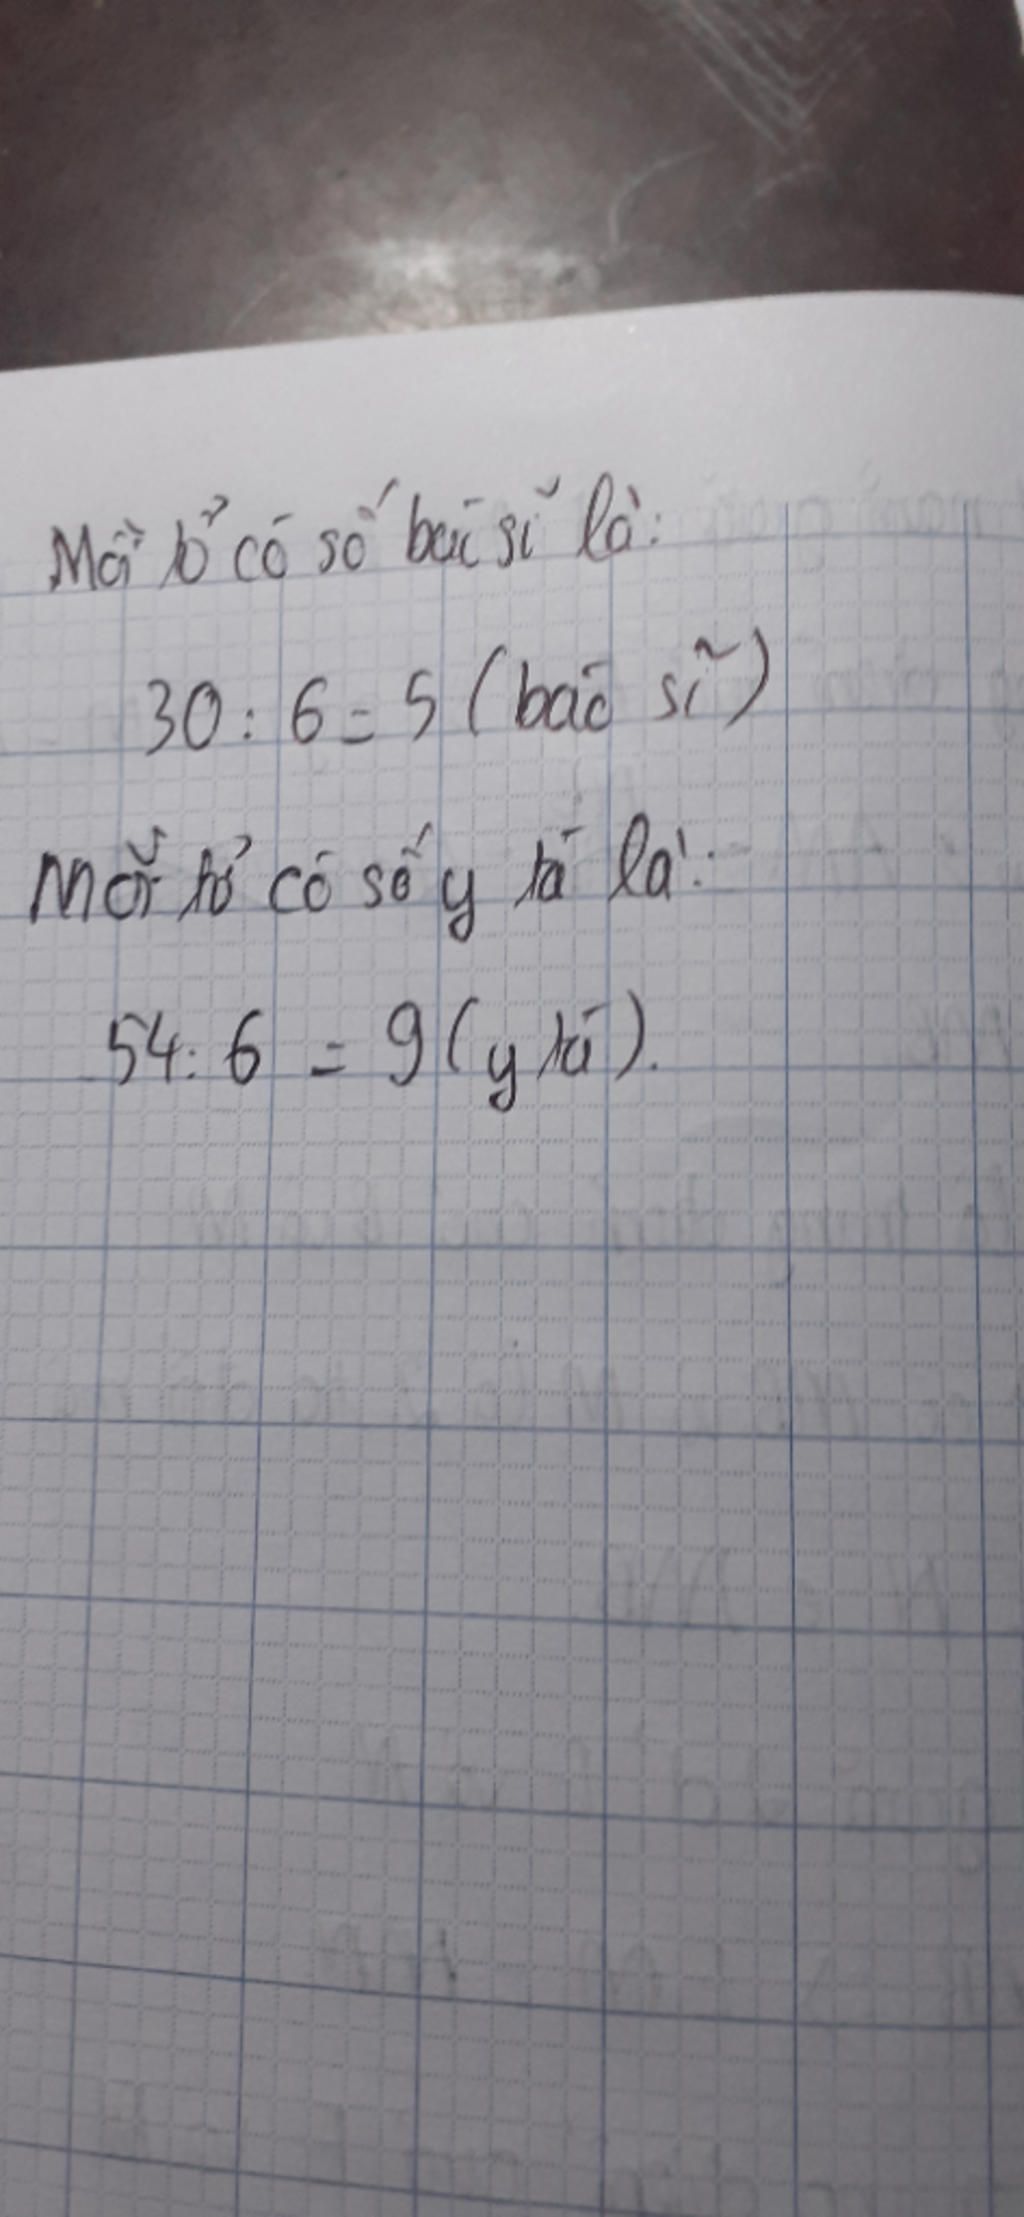 Mỗi tổ có số bác sĩ là:
30 : 6 = 5 (bác sĩ)
Mỗi tổ có số y tá là:
54 : 6 = 9 (y tá).